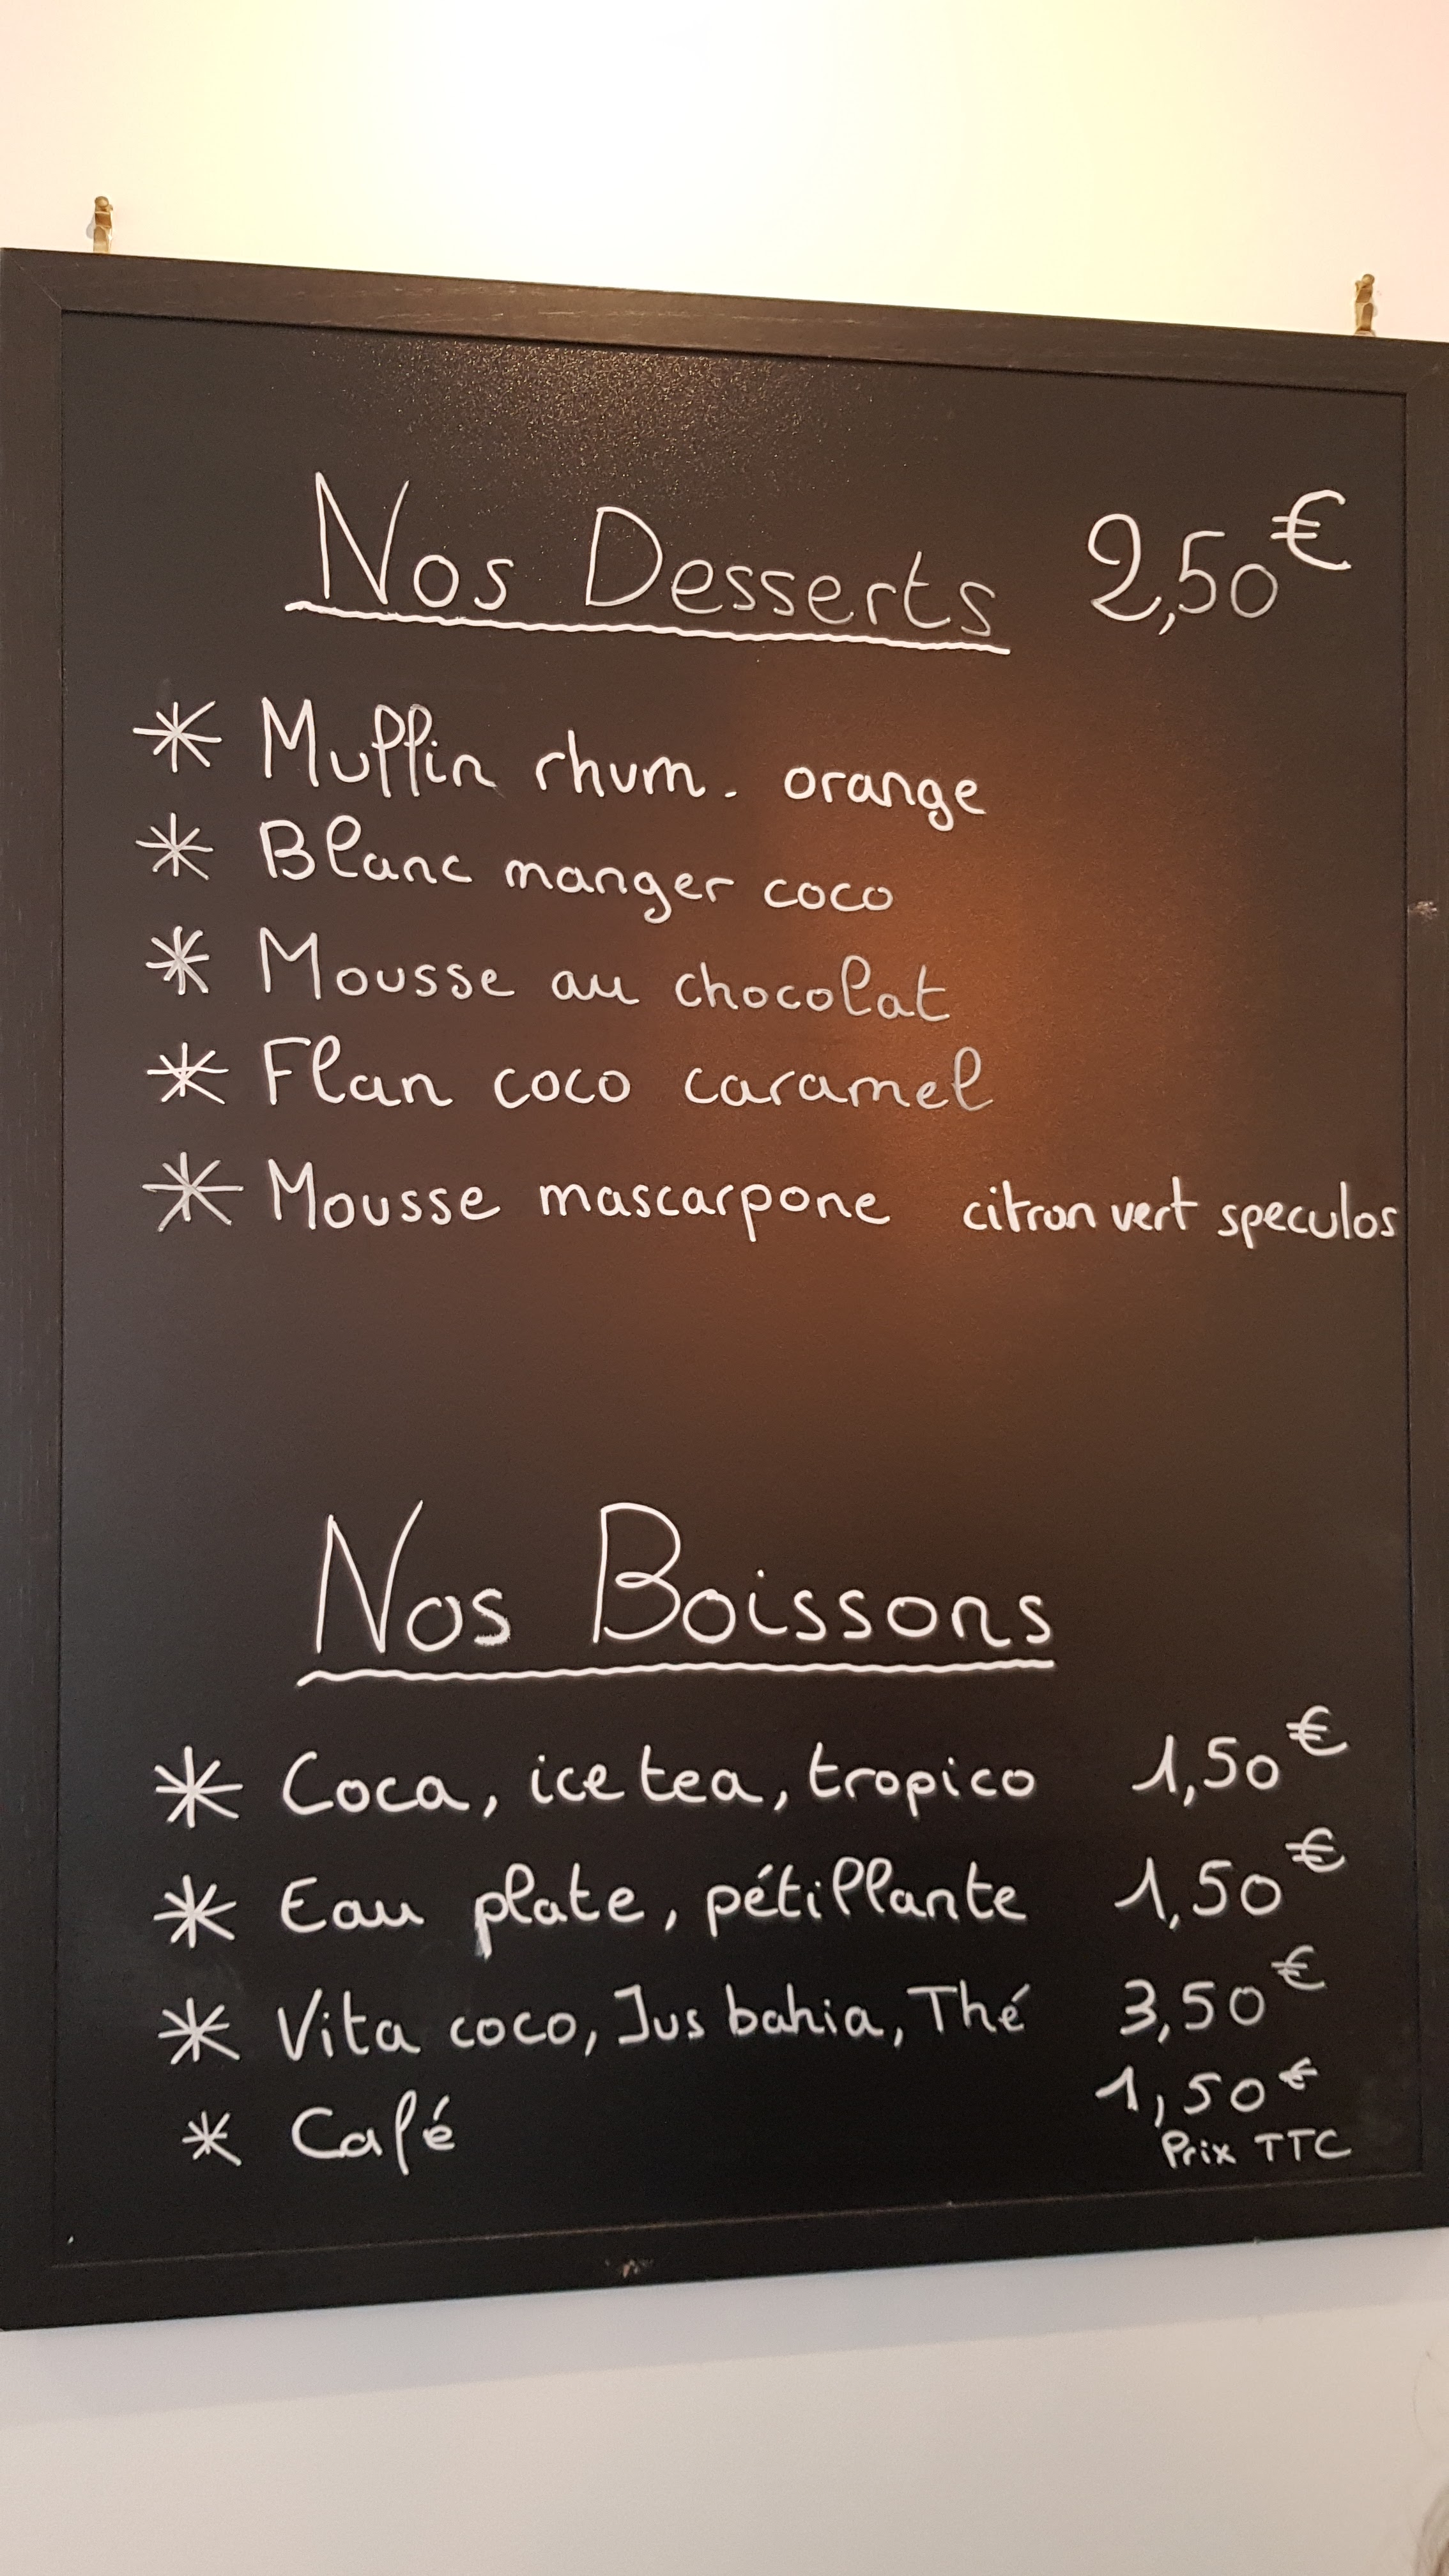 Nos Desserts 2,50€
* Muffin rhum. orange
* Blanc manger coco
* Mousse au chocolat
* Flan coco caramel
* Mousse mascarpone citron vert speculos
Nos Boissons
* Coca, ice tea, tropico 1,50€
* Eau plate, pétillante 1,50€
* Vita coco, Jus bahia, Thé 3,50€
* Café 1,50€
Prix TTC